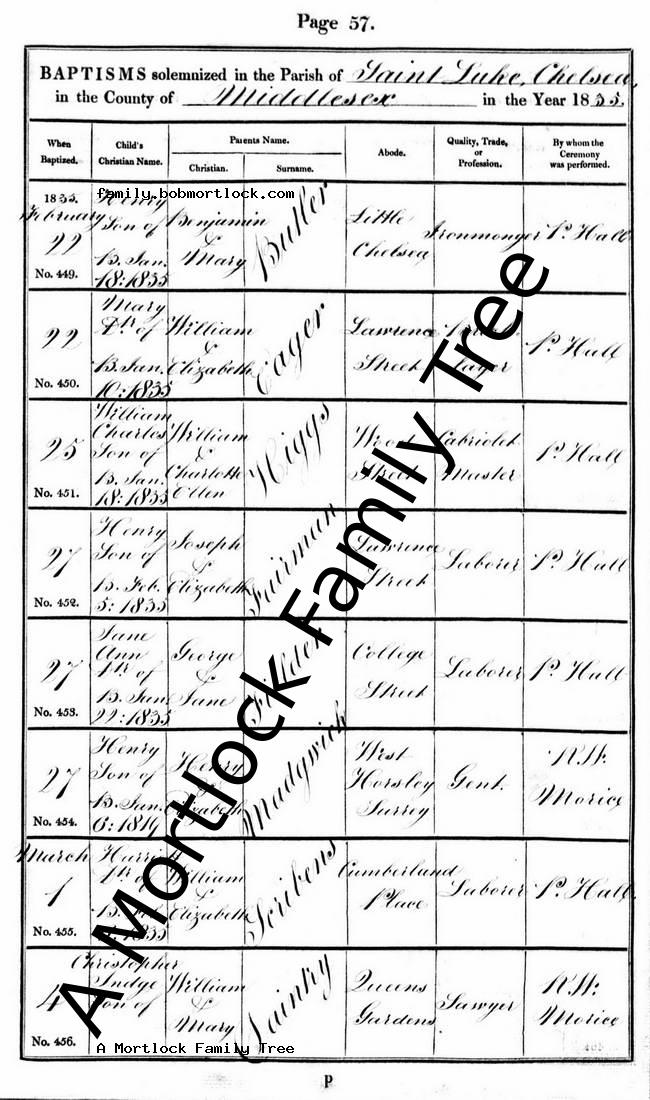 Page 57.
BAPTISMS solemnized in the Parish of Saint Luke, Chelsea,
in the County of Middlesex in the Year 1835.
When Baptized.
Child's Christian Name.
Parents Name.
Christian.
Surname.
Abode.
Quality, Trade, or Profession.
By whom the Ceremony was performed.
family.bobmortlock.com
1835.
February
22
No. 449.
Henry
Son of
B. Jan.
18: 1835
Benjamin
&
Mary
Butler
Little
Chelsea
Ironmonger
P. Hall
22
No. 450.
Mary
Dr. of
B. Jan.
10: 1835
William
&
Elizabeth
Eager
Lawrence
Street
layer
P. Hall
25
No. 451.
William
Charles
Son of
B. Jan.
18: 1835
William
&
Charlotte
Ellen
Higgs
Wood
Street
Cabriolet
Master
P. Hall
27
No. 452.
Henry
Son of
B. Feb.
5: 1835
Joseph
&
Elizabeth
Fairman
Lawrence
Street
Laborer
P. Hall
27
No. 453.
Jane
Ann
Dr. of
B. Jan.
22: 1835
George
&
Jane
College
Street
Laborer
P. Hall
27
No. 454.
Henry
Son of
B. Jan.
6: 1819
Henry
&
Elizabeth
Madgwick
West
Horsley
Surrey
Gent.
R. W.
Morice
March
1
No. 455.
Harriet
Dr. of
1835
William
&
Elizabeth
Scribens
Cumberland
Place
Laborer
P. Hall
4
No. 456.
Christopher
Indge
Son of
William
&
Mary
Queens
Gardens
Sawyer
R. W.
Morice
A Mortlock Family Tree
A Mortlock Family Tree
P